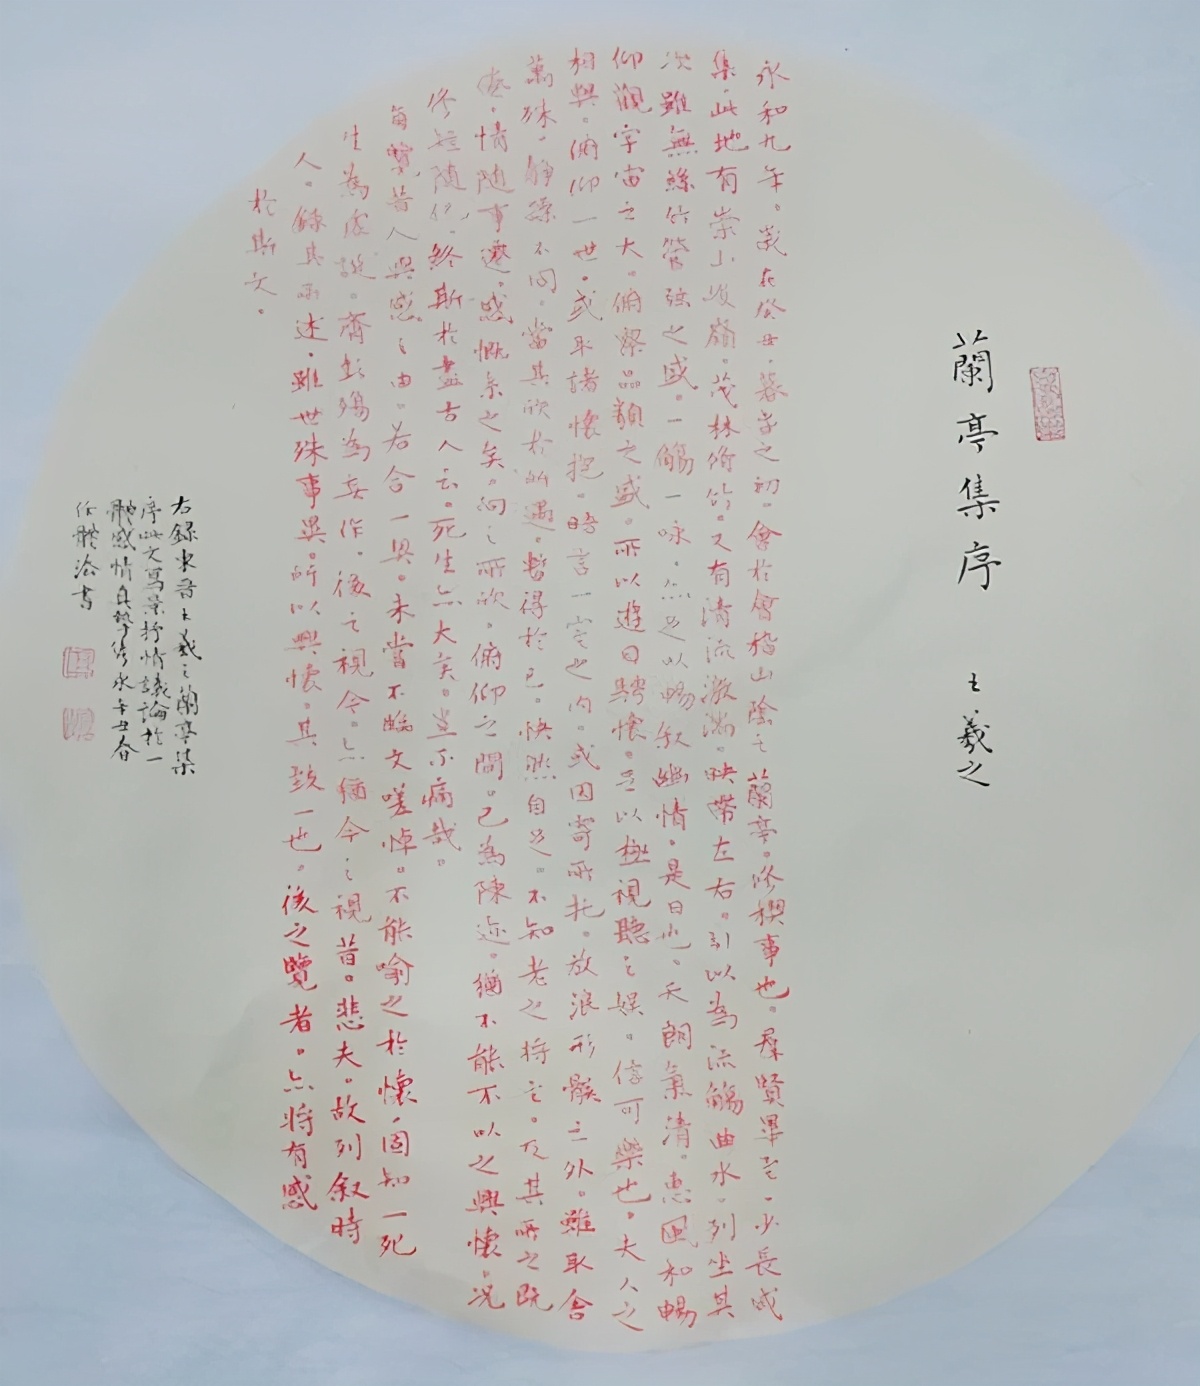 蘭亭集序 王羲之
永和九年。歲在癸丑。暮春之初。會於會稽山陰之蘭亭。修禊事也。羣賢畢至。少長咸
集。此地有崇山峻嶺。茂林修竹。又有清流激湍。映帶左右。引以為流觴曲水。列坐其
次雖無絲竹管弦之盛。一觴一咏。亦足以暢叙幽情。是日也。天朗氣清。惠風和暢
仰觀宇宙之大。俯察品類之盛。所以遊目騁懷。足以極視聽之娛。信可樂也。夫人之
相與。俯仰一世。或取諸懷抱。晤言一室之内。或因寄所托。放浪形骸之外。雖取舍
萬殊。靜躁不同。當其欣於所遇。暫得於己。快然自足。不知老之將至。及其所之既
倦。情隨事遷。感慨系之矣。向之所欣。俯仰之間。已為陳迹。猶不能不以之興懷。況
修短隨化。終期於盡古人云。死生亦大矣。豈不痛哉。
每覽昔人興感之由。若合一契。未嘗不臨文嗟悼。不能喻之於懷、固知一死
生為虛誕。齊彭殤為妄作。後之視今。亦猶今之視昔。悲夫。故列叙時
人。錄其所述。雖世殊事異。所以興懷。其致一也。後之覽者。亦將有感
於斯文。
右錄東晉王羲之蘭亭集
序此文寫景抒情議論於一
體感情真摯雋永辛丑春
任體法書